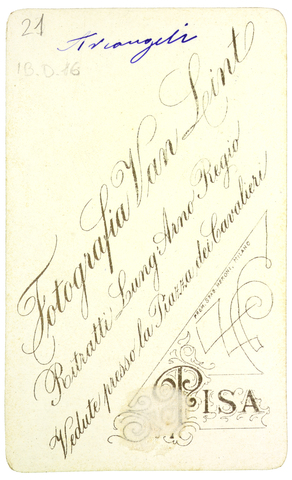 21
Arcangeli
19.D.16
Fotografia Van Lint
Ritratti, Lung'Arno Regio
Vedute presso la Piazza dei Cavalieri
PISA